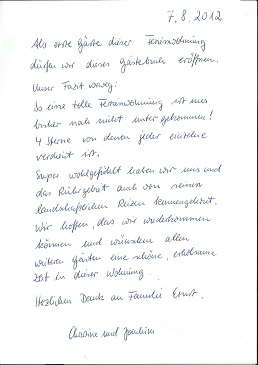 7.8.2012
Als erste Gäste dieser Ferienwohnung
dürfen wir dieses Gästebuch eröffnen.
Unser Fazit vorweg:
So eine tolle Ferienwohnung ist uns
bisher noch nicht unter gekommen!
4 Sterne von denen jeder einzelne
verdient ist.
Super wohlgefühlt haben wir uns und
das Ruhrgebiet auch von seinen
landschaftlichen Reizen kennengelernt.
Wir hoffen, das wir wiederkommen
können und wünschen allen
weiteren Gästen eine schöne, erholsame
Zeit in dieser Wohnung.
Herzlichen Dank an Familie Ernst.
Christine und Joachim